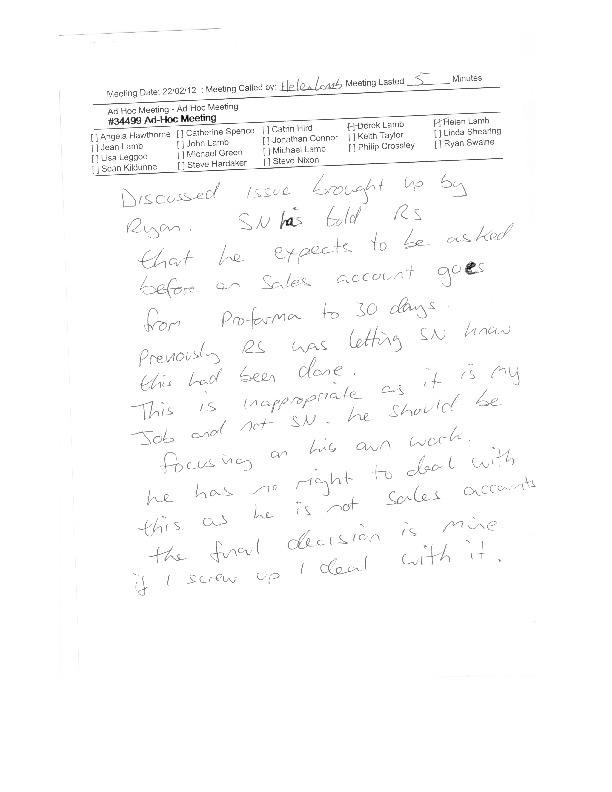 Meeting Date: 22/02/12 : Meeting Called by: Helen Lamb Meeting Lasted 5 Minutes
Ad Hoc Meeting - Ad Hoc Meeting
#34499 Ad-Hoc Meeting
[ ] Angela Hawthorne [ ] Catherine Spence [ ] Catrin Hird [-] Derek Lamb [-] Helen Lamb
[ ] Jean Lamb [ ] John Lamb [ ] Jonathan Connor [ ] Keith Taylor [ ] Linda Shearing
[ ] Lisa Leggoe [ ] Michael Green [ ] Michael Lamb [ ] Philip Crossley [ ] Ryan Swaine
[ ] Sean Kildunne [ ] Steve Hardaker [ ] Steve Nixon
Discussed issue brought up by
Ryan. SN has told RS
that he expects to be asked
before an Sales account goes
from Proforma to 30 days.
Previously RS was letting SN know
this had been done.
This is inappropriate as it is my
Job and not SN. he should be
focusing on his own work.
he has no right to deal with
this as he is not Sales accounts
the final decision is mine
if I screw up I deal with it.